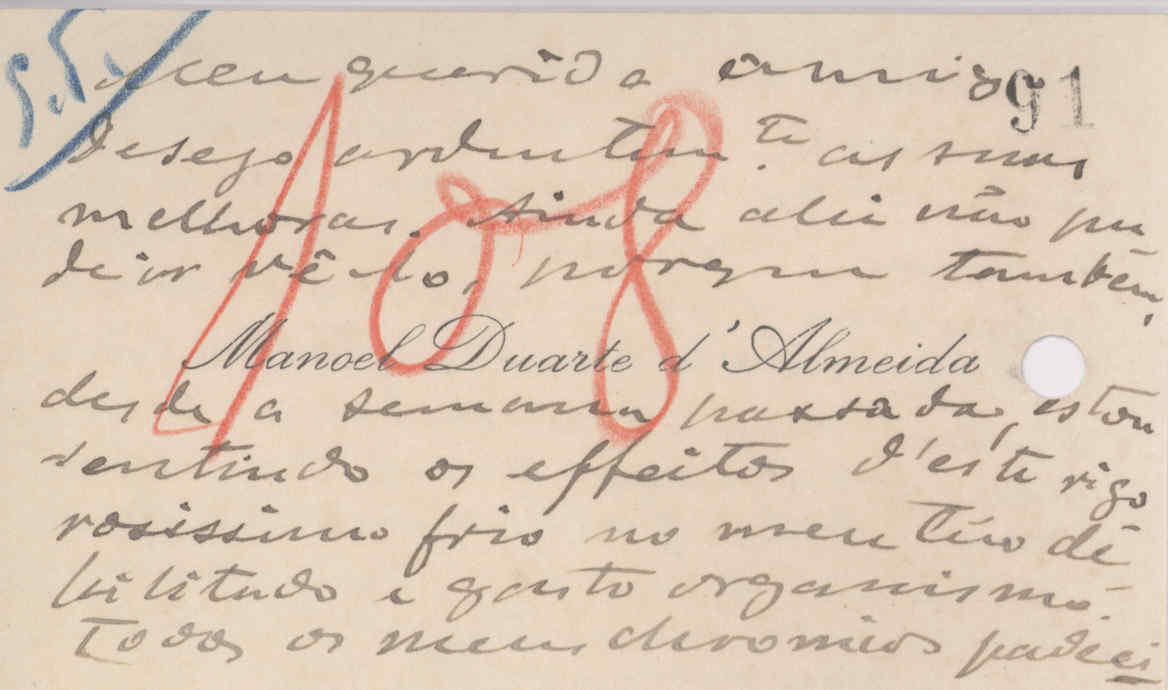 S.N.
91
108
Meu querido amigo
Desejo ardentem.te as suas
melhoras. Ainda ahi não pu
de ir vê-lo, porque tambêm,
Manoel Duarte d'Almeida
desde a semana passada, estou
sentindo os effeitos d'éste rigo
rosissimo frio no meu tão dé
bilitado e gasto organismo.
Todos os meus chronicos padeci